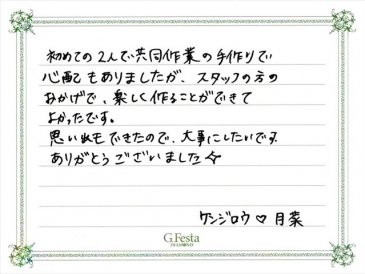 初めての2人で共同作業の手作りで
心配もありましたが、スタッフの方の
おかげで、楽しく作ることができて
よかったです。
思い出もできたので、大事にしたいです
ありがとうございました☆
ケンジロウ♡月菜
G.Festa
DIAMOND